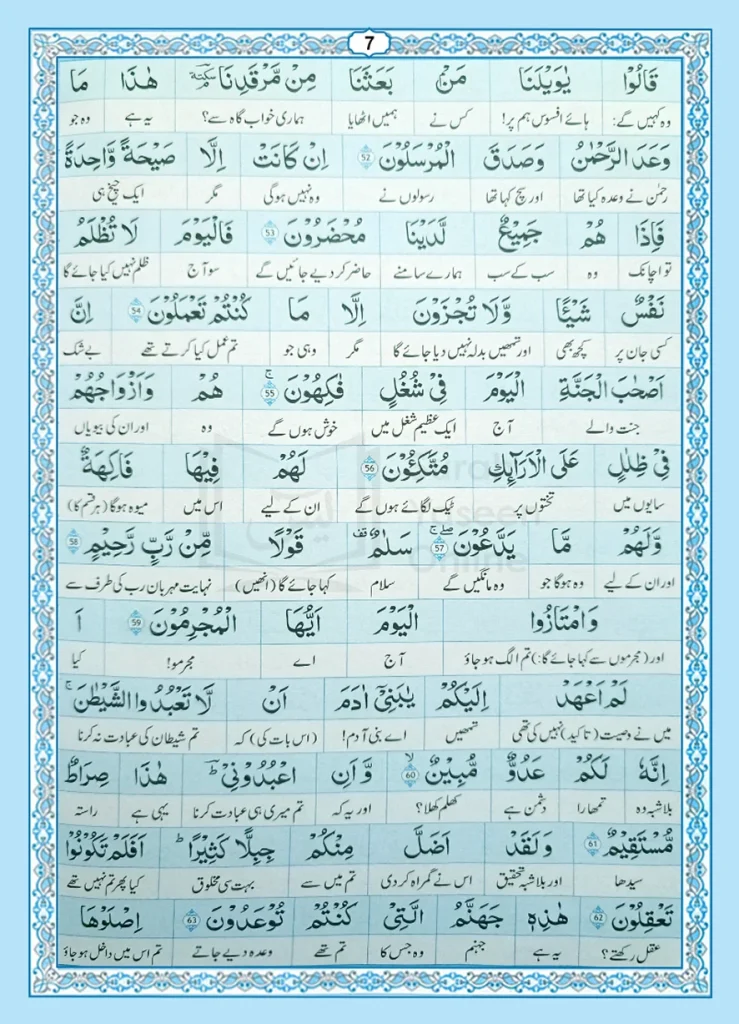 7
قَالُوْا يٰوَيْلَنَا مَنْۢ بَعَثَنَا مِنْ مَّرْقَدِنَا سكتة هٰذَا مَا
وہ کہیں گے: ہائے افسوس ہم پر! کس نے ہمیں اٹھایا ہماری خواب گاہ سے؟ یہ ہے وہ جو
وَعَدَ الرَّحْمٰنُ وَصَدَقَ الْمُرْسَلُوْنَ 52 اِنْ كَانَتْ اِلَّا صَيْحَةً وَّاحِدَةً
رحمٰن نے وعدہ کیا تھا اور سچ کہا تھا رسولوں نے وہ نہیں ہوگی مگر ایک چیخ ہی
فَاِذَا هُمْ جَمِيْعٌ لَّدَيْنَا مُحْضَرُوْنَ 53 فَالْيَوْمَ لَا تُظْلَمُ
تو اچانک وہ سب کے سب ہمارے سامنے حاضر کر دیے جائیں گے سو آج ظلم نہیں کیا جائے گا
نَفْسٌ شَيْـًٔا وَّلَا تُجْزَوْنَ اِلَّا مَا كُنْتُمْ تَعْمَلُوْنَ 54 اِنَّ
کسی جان پر کچھ بھی اور تمھیں بدلہ نہیں دیا جائے گا مگر وہی جو تم عمل کیا کرتے تھے بے شک
اَصْحٰبَ الْجَنَّةِ الْيَوْمَ فِيْ شُغُلٍ فٰكِهُوْنَ ۚ 55 هُمْ وَاَزْوَاجُهُمْ
جنت والے آج ایک عظیم شغل میں خوش ہوں گے وہ اور ان کی بیویاں
فِيْ ظِلٰلٍ عَلَى الْاَرَآىِٕكِ مُتَّكِـُٔوْنَ 56 لَهُمْ فِيْهَا فَاكِهَةٌ
سایوں میں تختوں پر ٹیک لگائے ہوں گے ان کے لیے اس میں میوہ ہوگا (ہر قسم کا)
وَّلَهُمْ مَّا يَدَّعُوْنَ ۚۖ 57 سَلٰمٌ قف قَوْلًا مِّنْ رَّبٍّ رَّحِيْمٍ 58
اور ان کے لیے وہ ہوگا جو وہ مانگیں گے سلام کہا جائے گا (انھیں) نہایت مہربان رب کی طرف سے
وَامْتَازُوا الْيَوْمَ اَيُّهَا الْمُجْرِمُوْنَ 59 اَ
اور (مجرموں سے کہا جائے گا:) تم الگ ہو جاؤ آج اے مجرمو! کیا
لَمْ اَعْهَدْ اِلَيْكُمْ يٰبَنِيْٓ اٰدَمَ اَنْ لَّا تَعْبُدُوا الشَّيْطٰنَ ۚ
میں نے وصیت (تاکید) نہیں کی تھی تمھیں اے بنی آدم! (اس بات کی) کہ تم شیطان کی عبادت نہ کرنا
اِنَّهٗ لَكُمْ عَدُوٌّ مُّبِيْنٌ ۙ 60 وَّاَنِ اعْبُدُوْنِيْ ؕ هٰذَا صِرَاطٌ
بلاشبہ وہ تمھارا دشمن ہے کھلم کھلا؟ اور یہ کہ تم میری ہی عبادت کرنا یہی ہے راستہ
مُّسْتَقِيْمٌ 61 وَلَقَدْ اَضَلَّ مِنْكُمْ جِبِلًّا كَثِيْرًا ؕ اَفَلَمْ تَكُوْنُوْا
سیدھا اور بلاشبہ تحقیق اس نے گمراہ کر دی تم میں سے بہت سی مخلوق کیا پھر تم نہیں تھے
تَعْقِلُوْنَ 62 هٰذِهٖ جَهَنَّمُ الَّتِيْ كُنْتُمْ تُوْعَدُوْنَ 63 اِصْلَوْهَا
عقل رکھتے؟ یہ ہے جہنم وہ جس کا تم تھے وعدہ دیے جاتے تم اس میں داخل ہو جاؤ